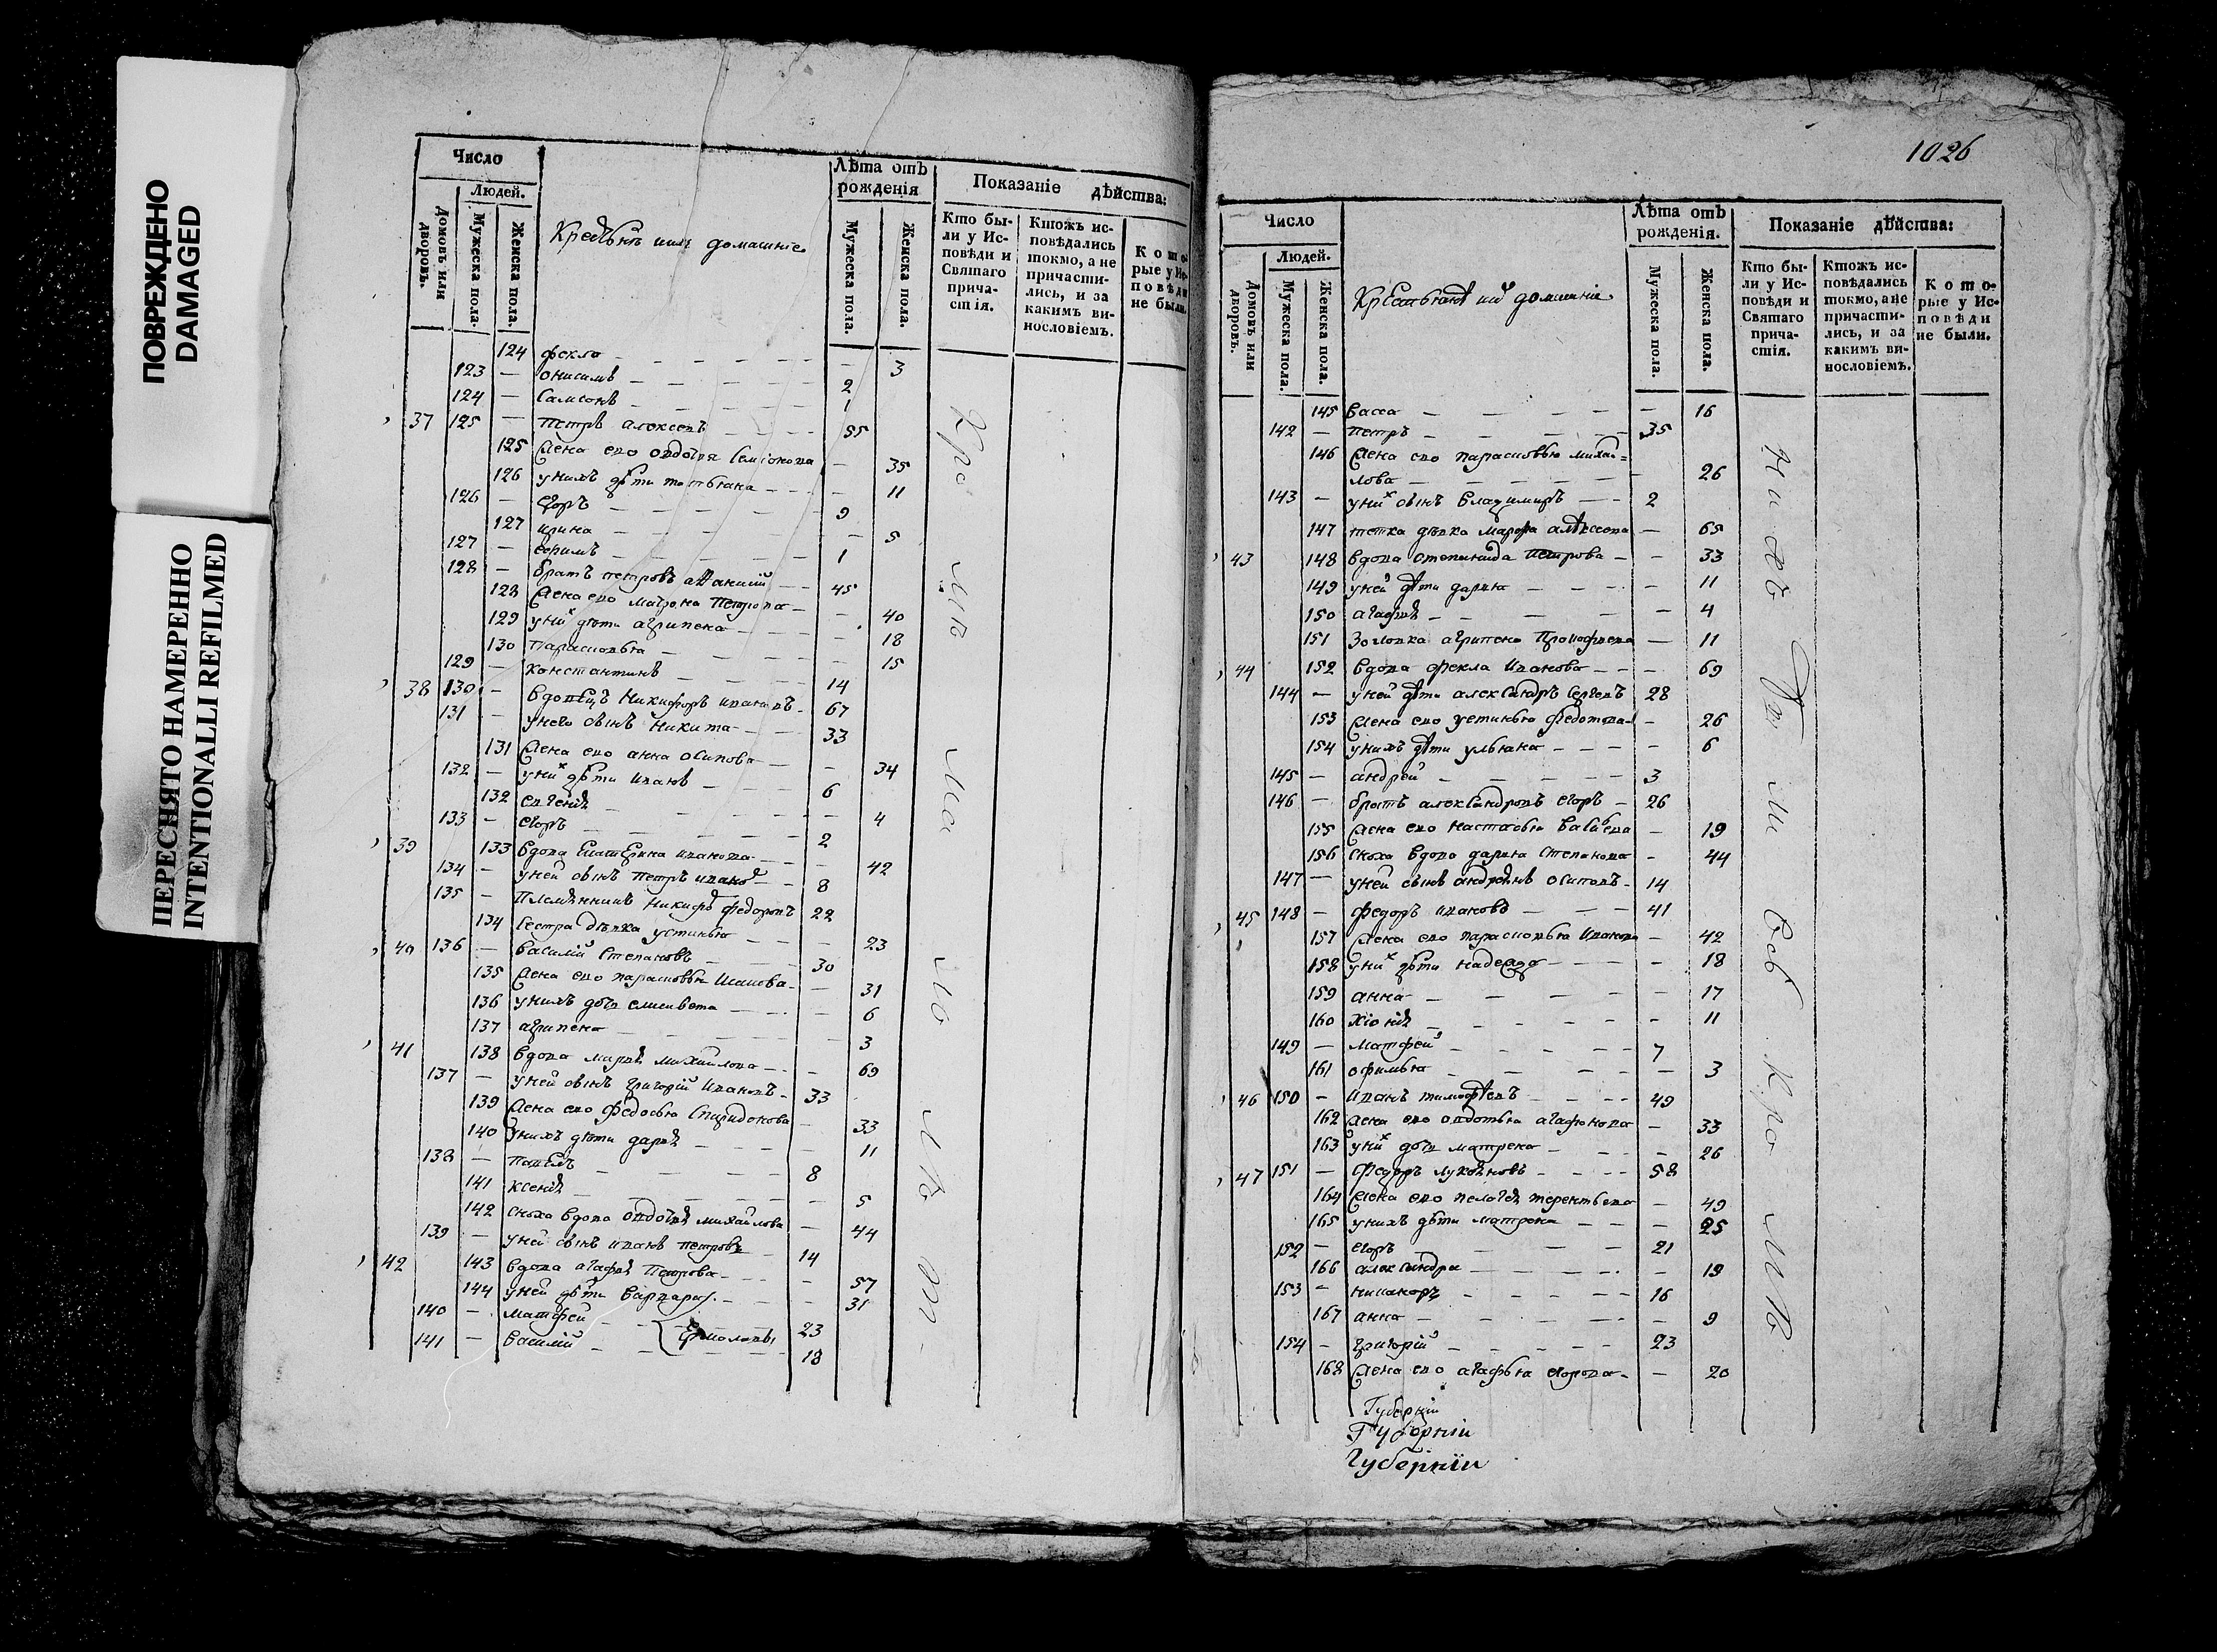 ПОВРЕЖДЕНО
DAMAGED
ПЕРЕСНЯТО НАМЕРЕННО
INTENTIONALLI REFILMED
Число
Людей.
Домовъ или дворовъ.
Мужеска пола.
Женска пола.
домашніе
Лѣта отъ рожденія
Мужеска пола.
Женска пола.
Показаніе дѣйства:
Кто были у Исповѣди и Святаго причастія.
Ктожъ исповѣдались токмо, а не причастились, и за какимъ винословіемъ.
Которые у Исповѣди не были.
124 фекла 3
123 онисимъ 2
124 Самсонъ 1
37 125 петръ алексеевъ 55
125 Жена его овдотя Семіонова 35
126 унихъ дѣти татьяна 11
126 егоръ 9
127 ирина 5
127 ефимъ 1
128 братъ петровъ 45
128 жена его матрона Петрова 40
129 уних дѣти агрипена 18
130 Парасковья 15
129 Константинъ 14
38 130 вдовецъ Никифоръ ивановъ 67
131 унего сынъ Никита 33
131 Жена его анна осипова 34
132 уних дѣти иванъ 6
132 евгенія 4
133 егоръ 2
39 133 вдова Екатерина иванова 42
134 уней сынъ петръ 8
135 Племянникъ Никифоръ федоровъ 22
134 Сестра дѣвка устинья 23
40 136 василій Степановъ 30
135 Жена его парасковья 31
136 унихъ дочь елисивета 6
137 агрипена 3
41 138 вдова марія михайлова 69
137 уней сынъ григорій ивановъ 33
139 Жена его федосья Спиридонова 33
140 унихъ дѣти дарія 11
138 павелъ 8
141 ксенія 5
142 сноха вдова овдотія михайлова 44
139 уней сынъ иванъ петровъ 14
42 143 вдова агафія Петрова 57
144 уней дѣти варвара 31
140 матфей 23
Ермолаевы
141 василій 18
1026
Число
Людей.
Домовъ или дворовъ.
Мужеска пола.
Женска пола.
домашніе
Лѣта отъ рожденія.
Мужеска пола.
Женска пола.
Показаніе дѣйства:
Кто были у Исповѣди и Святаго причастія.
Ктожъ исповѣдались токмо, а не причастились, и за какимъ винословіемъ.
Которые у Исповѣди не были.
145 васса 16
142 петръ 35
146 Жена его парасковью михай=
лова 26
143 уних сынъ владимиръ 2
147 тетка дѣвка марфа алексеева 65
43 148 вдова степанида петрова 33
149 уней дѣти дарья 11
150 агафія 4
151 Золовка агрипена Прокофьева 11
44 152 вдова фекла иванова 69
144 уней дѣти александръ Сергеевъ 28
153 Жена его устинья федотова 26
154 унихъ дѣти ульяна 6
145 андрей 3
146 братъ александровъ егоръ 26
155 Жена его настасья 19
156 сноха вдова дарья Степанова 44
147 уней сынъ осиповъ 14
45 148 федоръ ивановъ 41
157 Жена его парасковья иванова 42
158 уних дѣти надежда 18
159 анна 17
160 хіонія 11
149 матфей 7
161 офимья 3
46 150 иванъ тимофѣевъ 49
162 жена его овдотья агафонова 33
163 уних дочь матрена 26
47 151 федоръ лукояновъ 58
164 Жена его пелагея терентьева 49
165 унихъ дѣти матрена 25
152 егоръ 21
166 александра 19
153 никаноръ 16
167 анна 9
154 григорій 23
168 Жена его агафья егорова 20
Губерніи
Губерніи
Губерніи